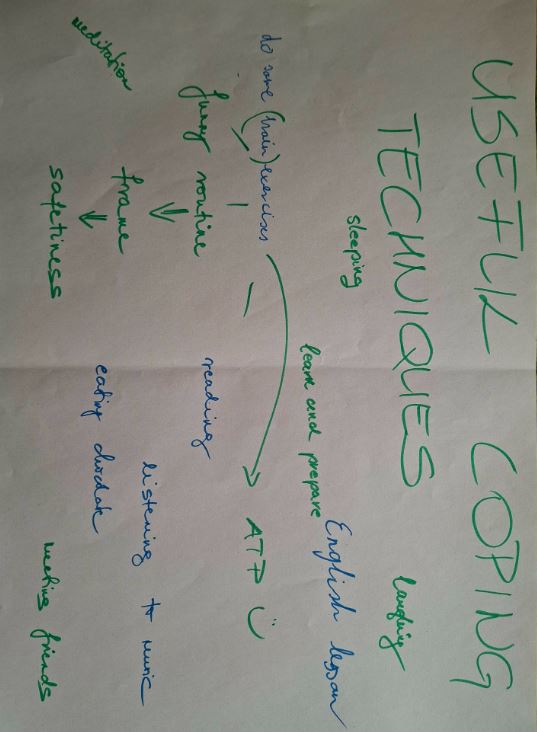 USEFUL COPING
TECHNIQUES
sleeping
laughing
learn and prepare
English lesson
do some (brain) exercises
ATP :)
funny routine
frame
safetiness
meditation
reading
listening to music
eating chocolate
meeting friends